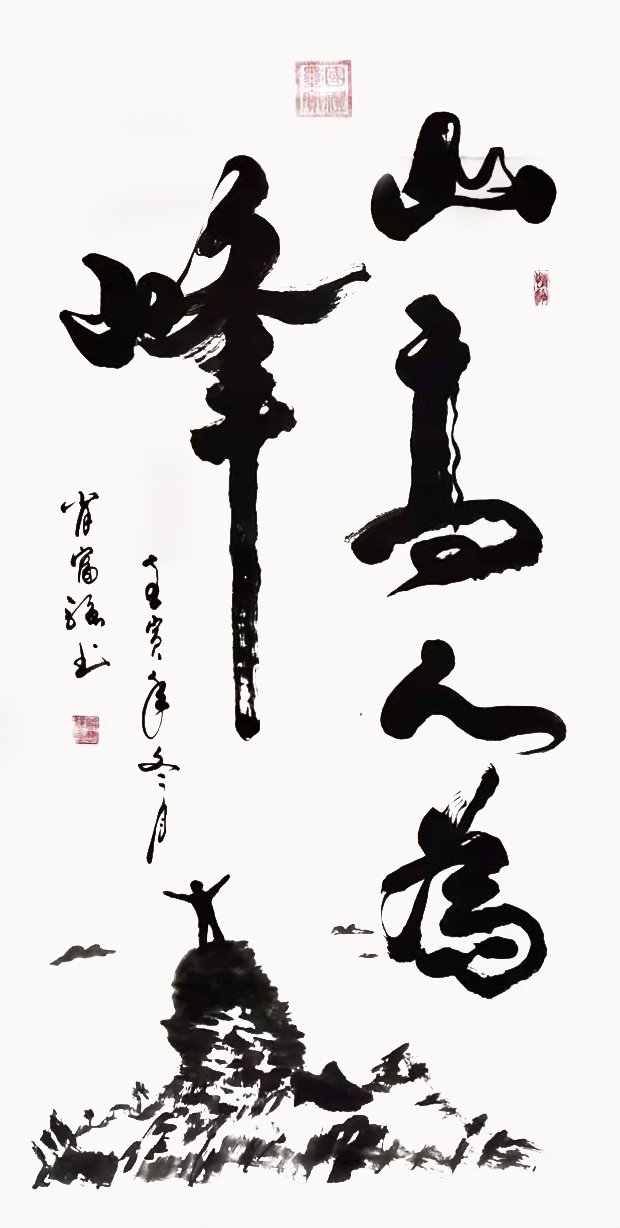 山高人為
峰
壬寅年冬月
肖富强书